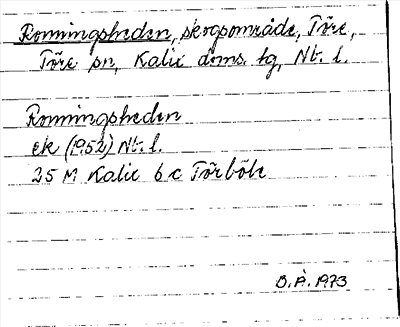 Ronningsheden, skogsområde, Töre,
Töre sn, Kalix doms. tg, Nt. l.
Ronningsheden
ek (1952) Nt. l.
25 M Kalix 6 c Törböle
B.Å. 1973